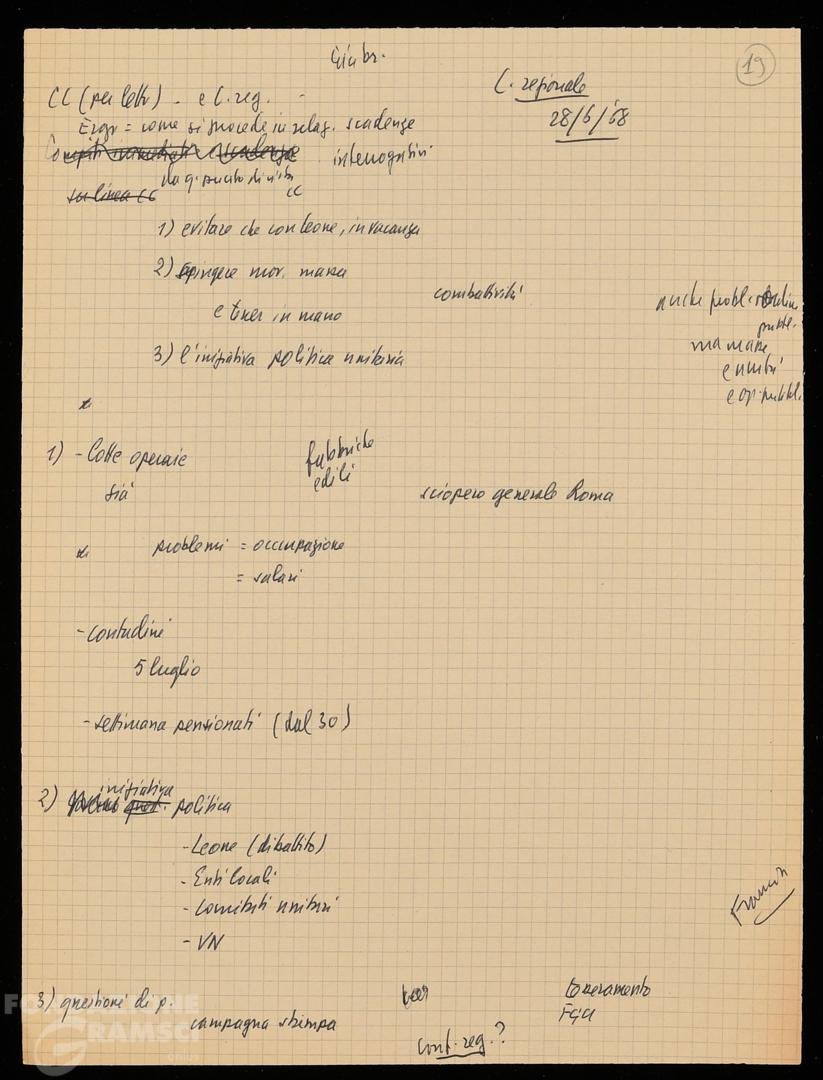 19
C. regionale
28/6/68
CC (per lettr) - e C. reg. -
= come si procede in relaz. scadenze
interrogativi
da q. punto di vista
su linea CC
CC
1) evitare che con Leone, in vacanza
2) spingere mov. massa
combattività
e tener in mano
3) l'iniziativa politica unitaria
anche probl. ordine
pubbl.
ma masse
e unità
e op. pubbl.
1) - Lotte operaie
già
fabbriche
edili
sciopero generale Roma
problemi = occupazione
= salari
- contadini
5 luglio
- settimana pensionati (dal 30)
2) iniziativa politica
- Leone (dibattito)
- Enti locali
- Comitati unitari
- VN
3) questioni di p.
campagna stampa
tesseramento
FGCI
conf. reg.?
FONDAZIONE
GRAMSCI